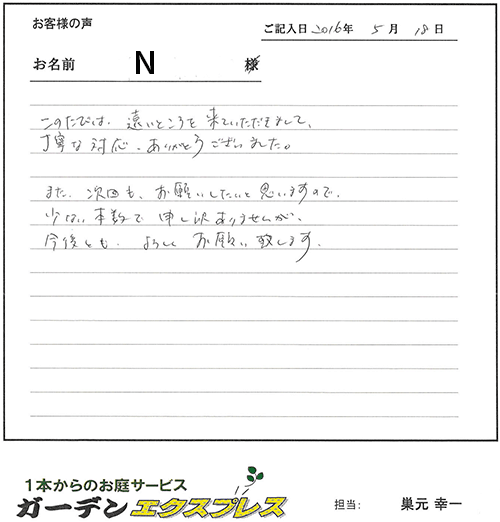 お客様の声
ご記入日 2016年 5月 18日
お名前 N 様
このたびは、遠いところを来ていただきまして、
丁寧な対応、ありがとうございました。
また、次回も、お願いしたいと思いますので、
少ない本数で申し訳ありませんが、
今後とも、よろしくお願い致します。
1本からのお庭サービス
ガーデンエクスプレス
担当: 巣元 幸一